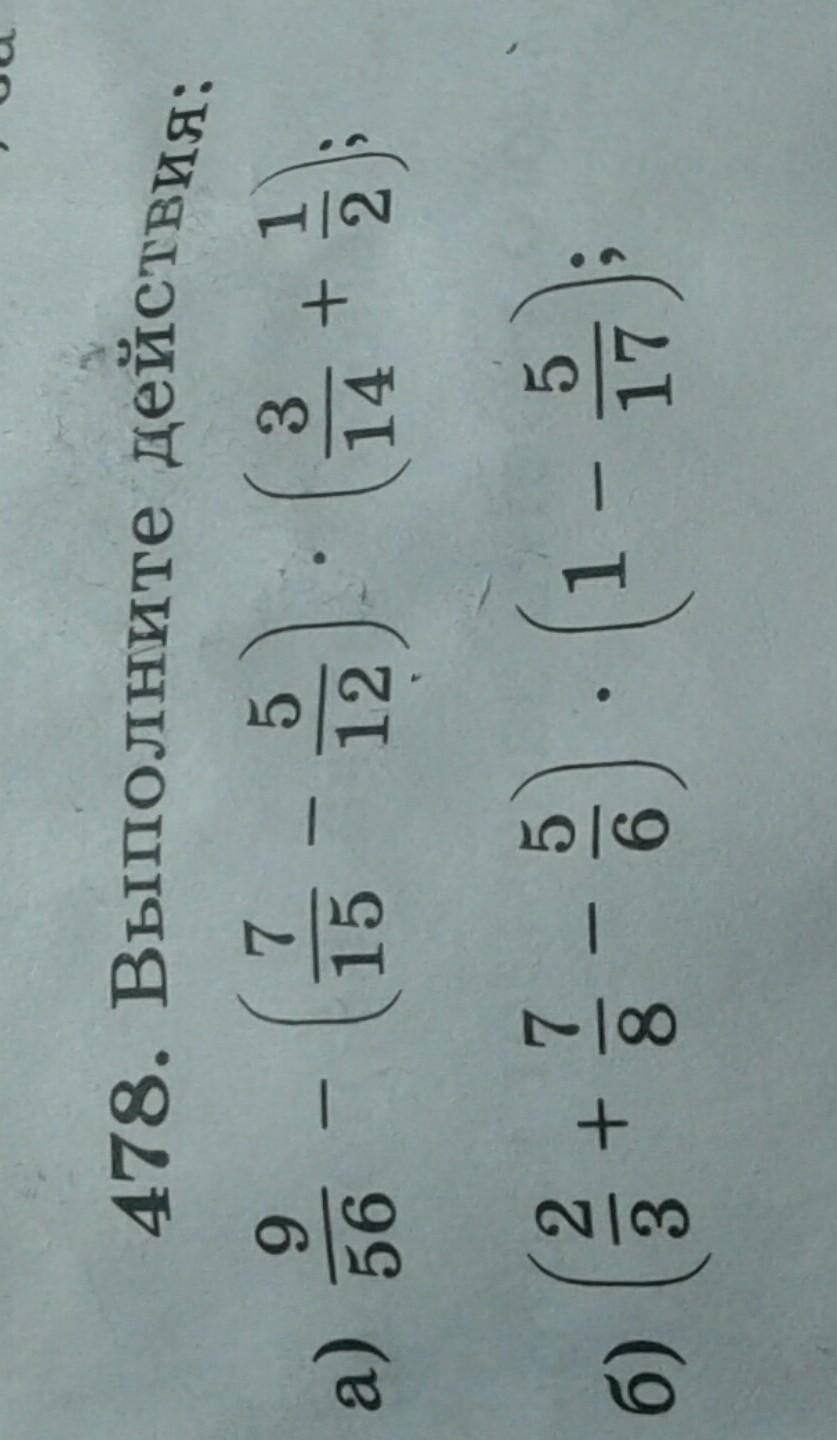 478. Выполните действия:
а) 9/56 − (7/15 − 5/12) · (3/14 + 1/2);
б) (2/3 + 7/8 − 5/6) · (1 − 5/17);